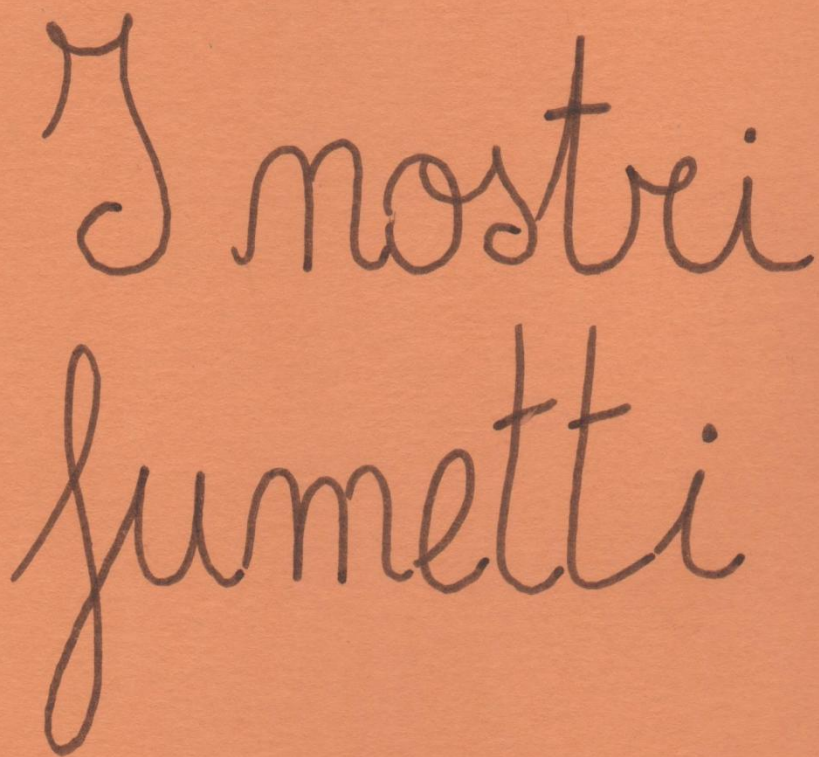 I nostri
fumetti